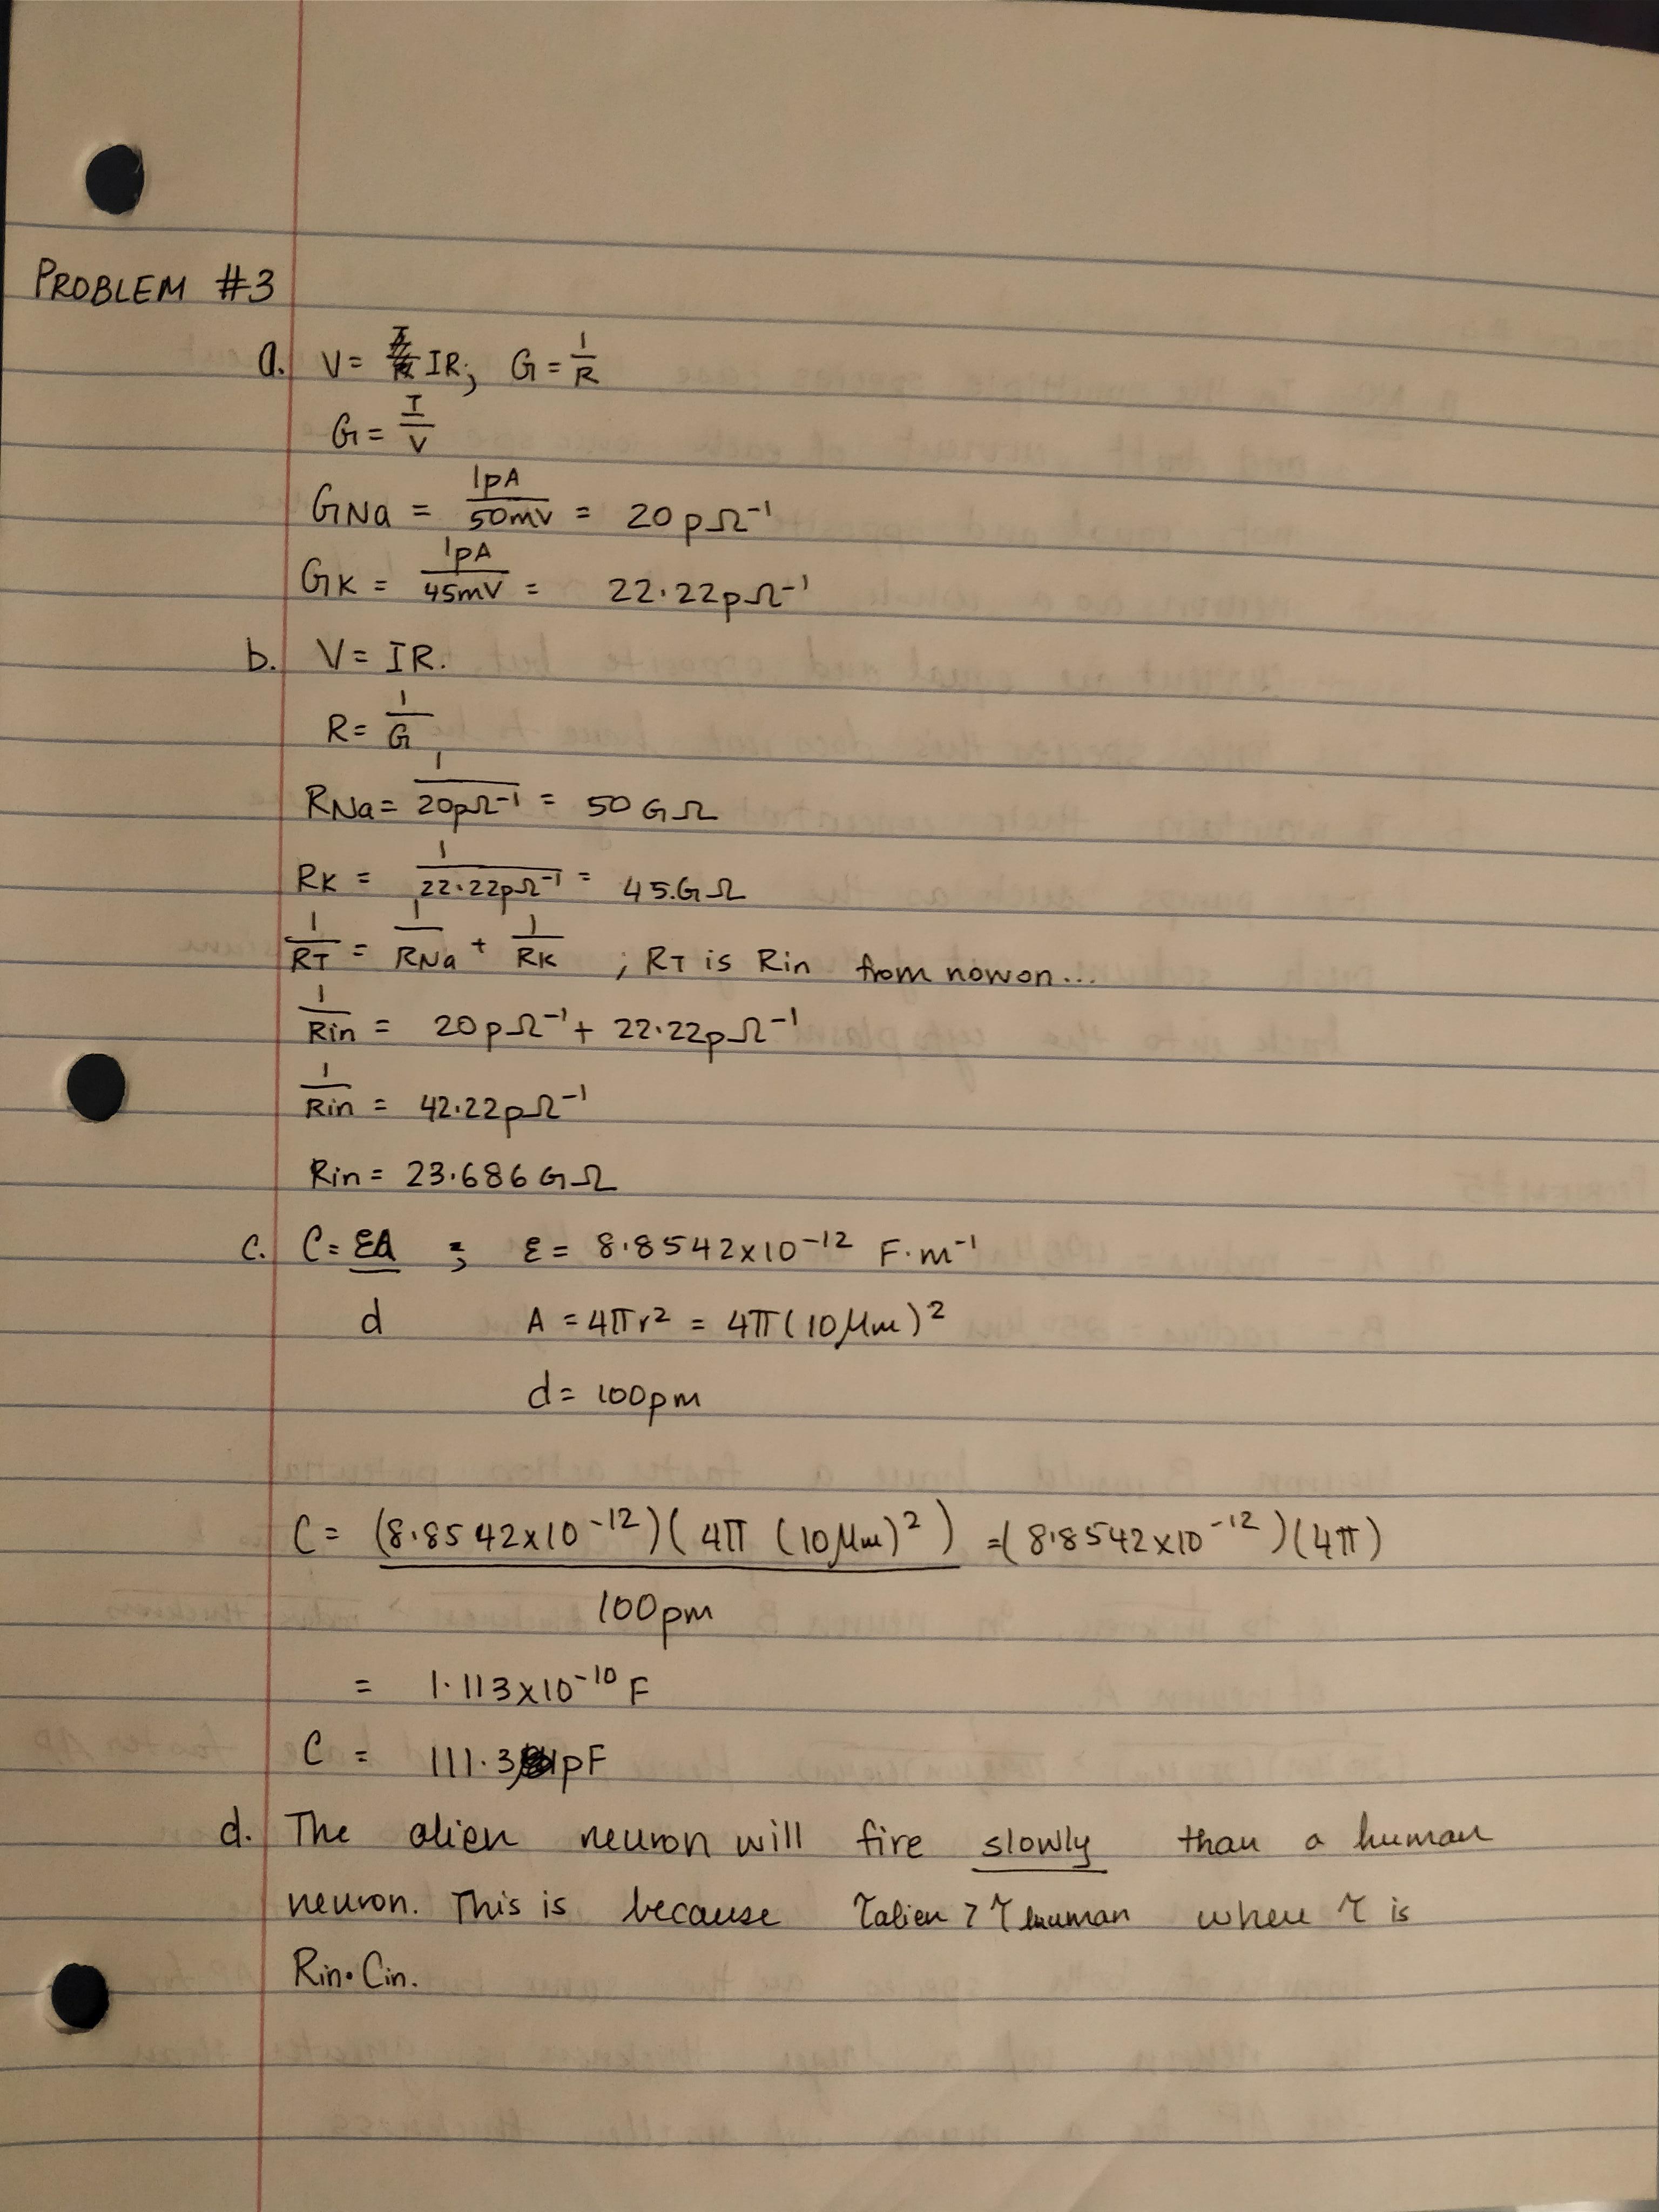 PROBLEM #3
a. V = IR; G = 1/R
G = I/V
GNa = 1pA/50mV = 20pΩ⁻¹
GK = 1pA/45mV = 22.22pΩ⁻¹
b. V = IR.
R = 1/G
RNa = 1/20pΩ⁻¹ = 50GΩ
RK = 1/22.22pΩ⁻¹ = 45.GΩ
1/RT = 1/RNa + 1/RK ; RT is Rin from now on...
1/Rin = 20pΩ⁻¹ + 22.22pΩ⁻¹
1/Rin = 42.22pΩ⁻¹
Rin = 23.686GΩ
c. C = εA/d ; ε = 8.8542x10⁻¹² F·m⁻¹
A = 4πr² = 4π(10μm)²
d = 100pm
C = (8.8542x10⁻¹²)(4π(10μm)²)/100pm = (8.8542x10⁻¹²)(4π)
= 1.113x10⁻¹⁰ F
C = 111.3 pF
d. The alien neuron will fire slowly than a human
neuron. This is because τalien > τhuman where τ is
Rin·Cin.